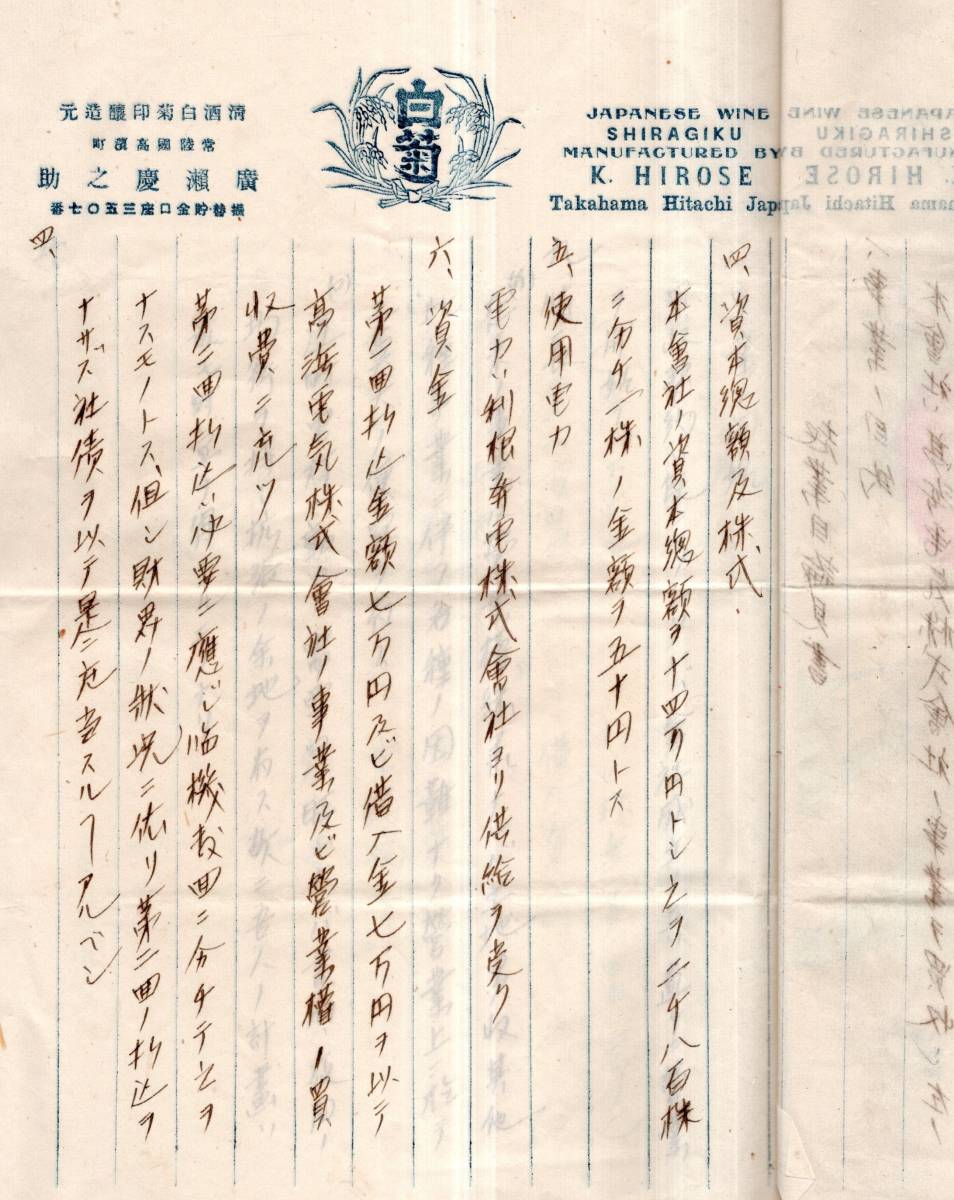 元造釀印菊白酒清
町濱高國陸常
助之慶瀨廣
番七〇五三座口金貯替振
白菊
JAPANESE WINE
SHIRAGIKU
MANUFACTURED BY
K. HIROSE
Takahama Hitachi Jap
四、資本總額及株式
本會社ノ資本總額ヲ十四万円トシ之ヲ二千八百株
ニ分チ一株ノ金額ヲ五十円トス
五、使用電力
電力ハ利根発電株式會社ヨリ供給ヲ受ク
六、資金
第一回払込金額七万円及ビ借入金七万円ヲ以テ
高浜電気株式會社ノ事業及ビ營業権ノ買
収費ニ充ツ
第二回払込ハ必要ニ應ジ臨機数回ニ分チテ之ヲ
ナスモノトス、但シ財界ノ状況ニ依リ第二回ノ払込ヲ
ナサズ社債ヲ以テ是ニ充当スルヿアルベシ
四、